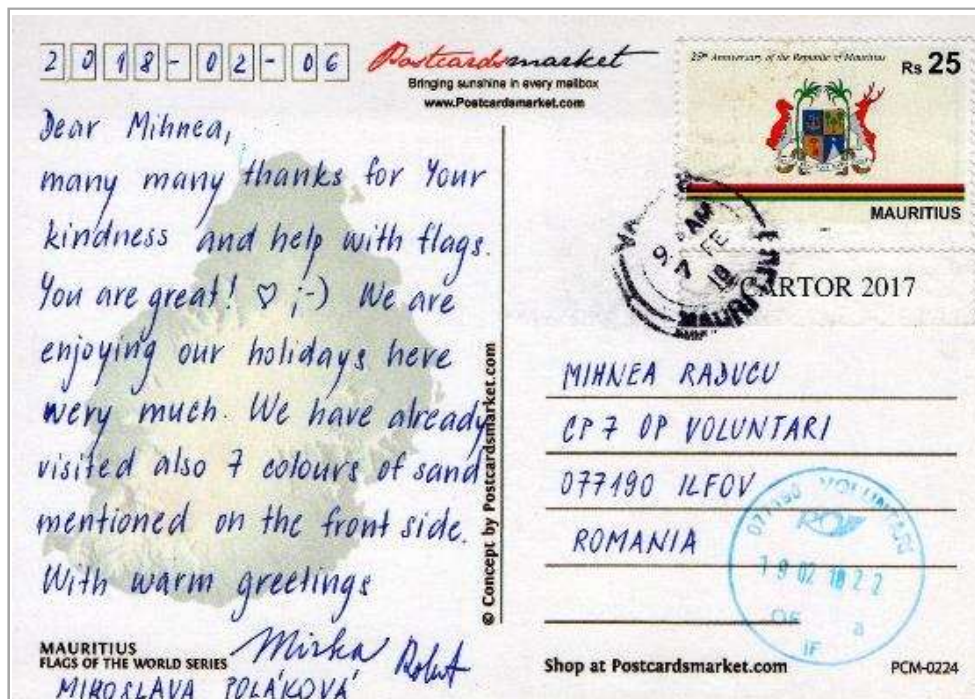 2018-02-06
Postcardsmarket
Bringing sunshine in every mailbox
www.Postcardsmarket.com
25th Anniversary of the Republic of Mauritius
Rs 25
MAURITIUS
9 AM
7 FE 18
MAURI
CARTOR 2017
Dear Mihnea,
many many thanks for Your
kindness and help with flags.
You are great! ♡ ;-) We are
enjoying our holidays here
wery much. We have already
visited also 7 colours of sand
mentioned on the front side.
With warm greetings
Mirka Robert
MIROSLAVA POLÁKOVÁ
MAURITIUS
FLAGS OF THE WORLD SERIES
© Concept by Postcardsmarket.com
MIHNEA RADUCU
CP 7 OP VOLUNTARI
077190 ILFOV
ROMANIA
077190 VOLUNTARI
19 02 18 22
OF a
IF
Shop at Postcardsmarket.com
PCM-0224